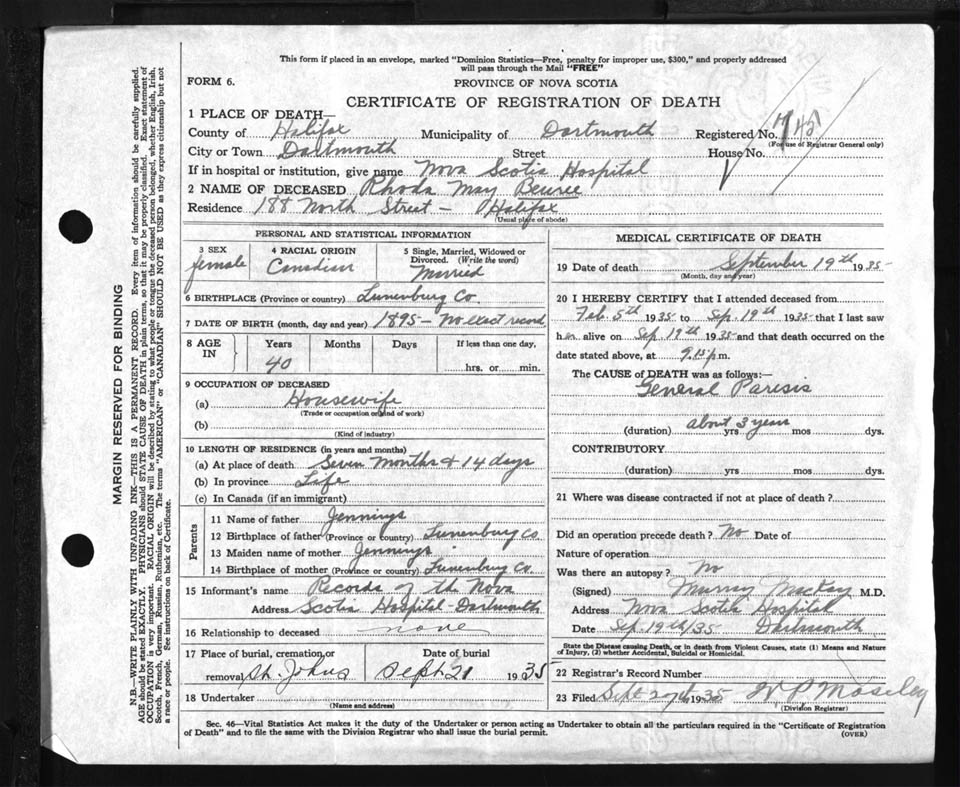 This form if placed in an envelope, marked "Dominion Statistics—Free, penalty for improper use, $300," and properly addressed
will pass through the Mail "FREE"
FORM 6. PROVINCE OF NOVA SCOTIA
CERTIFICATE OF REGISTRATION OF DEATH
1 PLACE OF DEATH—
County of Halifax Municipality of Dartmouth Registered No.
(For use of Registrar General only)
City or Town Dartmouth Street House No.
If in hospital or institution, give name Nova Scotia Hospital
2 NAME OF DECEASED Rhoda May
Residence 188 North Street — Halifax
(Usual place of abode)
PERSONAL AND STATISTICAL INFORMATION
3 SEX 4 RACIAL ORIGIN 5 Single, Married, Widowed or
Divorced. (Write the word)
female Canadian Married
6 BIRTHPLACE (Province or country) Lunenburg Co.
7 DATE OF BIRTH (month, day and year) 1895 — No exact record
8 AGE IN Years Months Days If less than one day,
40 hrs. or min.
9 OCCUPATION OF DECEASED
(a) Housewife
(Trade or occupation or kind of work)
(b)
(Kind of industry)
10 LENGTH OF RESIDENCE (in years and months)
(a) At place of death Seven months & 14 days
(b) In province Life
(c) In Canada (if an immigrant)
Parents
11 Name of father Jennings
12 Birthplace of father (Province or country) Lunenburg Co
13 Maiden name of mother Jennings
14 Birthplace of mother (Province or country) Lunenburg Co.
15 Informant's name Records of the Nova
Address Scotia Hospital - Dartmouth
16 Relationship to deceased none
17 Place of burial, cremation, or Date of burial
removal St. Johns Sept 21 1935
18 Undertaker
(Name and address)
MEDICAL CERTIFICATE OF DEATH
19 Date of death September 19th 1935
(Month, day and year)
20 I HEREBY CERTIFY that I attended deceased from
Feb. 5th 1935 to Sep. 19th 1935 that I last saw
h alive on Sep. 19th 1935 and that death occurred on the
date stated above, at 9.15 p.m.
The CAUSE of DEATH was as follows:—
General Paresis
about 3 years
(duration) yrs mos dys.
CONTRIBUTORY
(duration) yrs mos dys.
21 Where was disease contracted if not at place of death?
Did an operation precede death? No Date of
Nature of operation
Was there an autopsy? No
(Signed) Murray MacKay M.D.
Address Nova Scotia Hospital
Date Sep. 19th/35 Dartmouth
State the Disease causing Death, or in death from Violent Causes, state (1) Means and Nature
of Injury, (2) whether Accidental, Suicidal or Homicidal.
22 Registrar's Record Number
23 Filed Sept 1935
(Division Registrar)
Sec. 46—Vital Statistics Act makes it the duty of the Undertaker or person acting as Undertaker to obtain all the particulars required in the "Certificate of Registration
of Death" and to file the same with the Division Registrar who shall issue the burial permit.
(OVER)
MARGIN RESERVED FOR BINDING
N.B.—WRITE PLAINLY WITH UNFADING INK—THIS IS A PERMANENT RECORD. Every item of information should be carefully supplied.
AGE should be stated EXACTLY. PHYSICIANS should STATE CAUSE OF DEATH in plain terms, so that it may be properly classified. Exact statement of
OCCUPATION is very important. RACIAL ORIGIN will be described by stating to what people or tongue the deceased person belonged, whether English, Irish,
Scotch, French, German, Russian, Ruthenian, etc. The terms "AMERICAN" or "CANADIAN" SHOULD NOT BE USED as they express citizenship but not
a race or people. See instructions on back of Certificate.